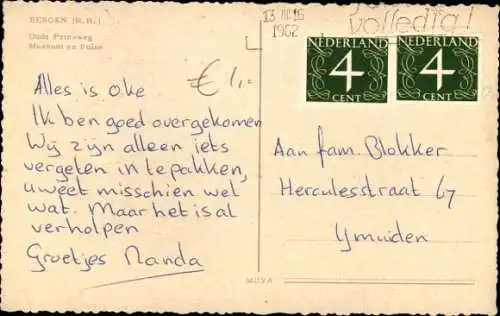 BERGEN (N.H.)
Oude Prinsweg
Museum en Ruïne
1962
volledig!
NEDERLAND
4
CENT
NEDERLAND
4
CENT
€ 1,-
Alles is oke
Ik ben goed overgekomen
Wij zijn alleen iets
vergeten in te pakken,
u weet misschien wel
wat. Maar het is al
verholpen
Groetjes Nanda
Aan fam. Blokker
Herculesstraat 67
Ymuiden
MUVA